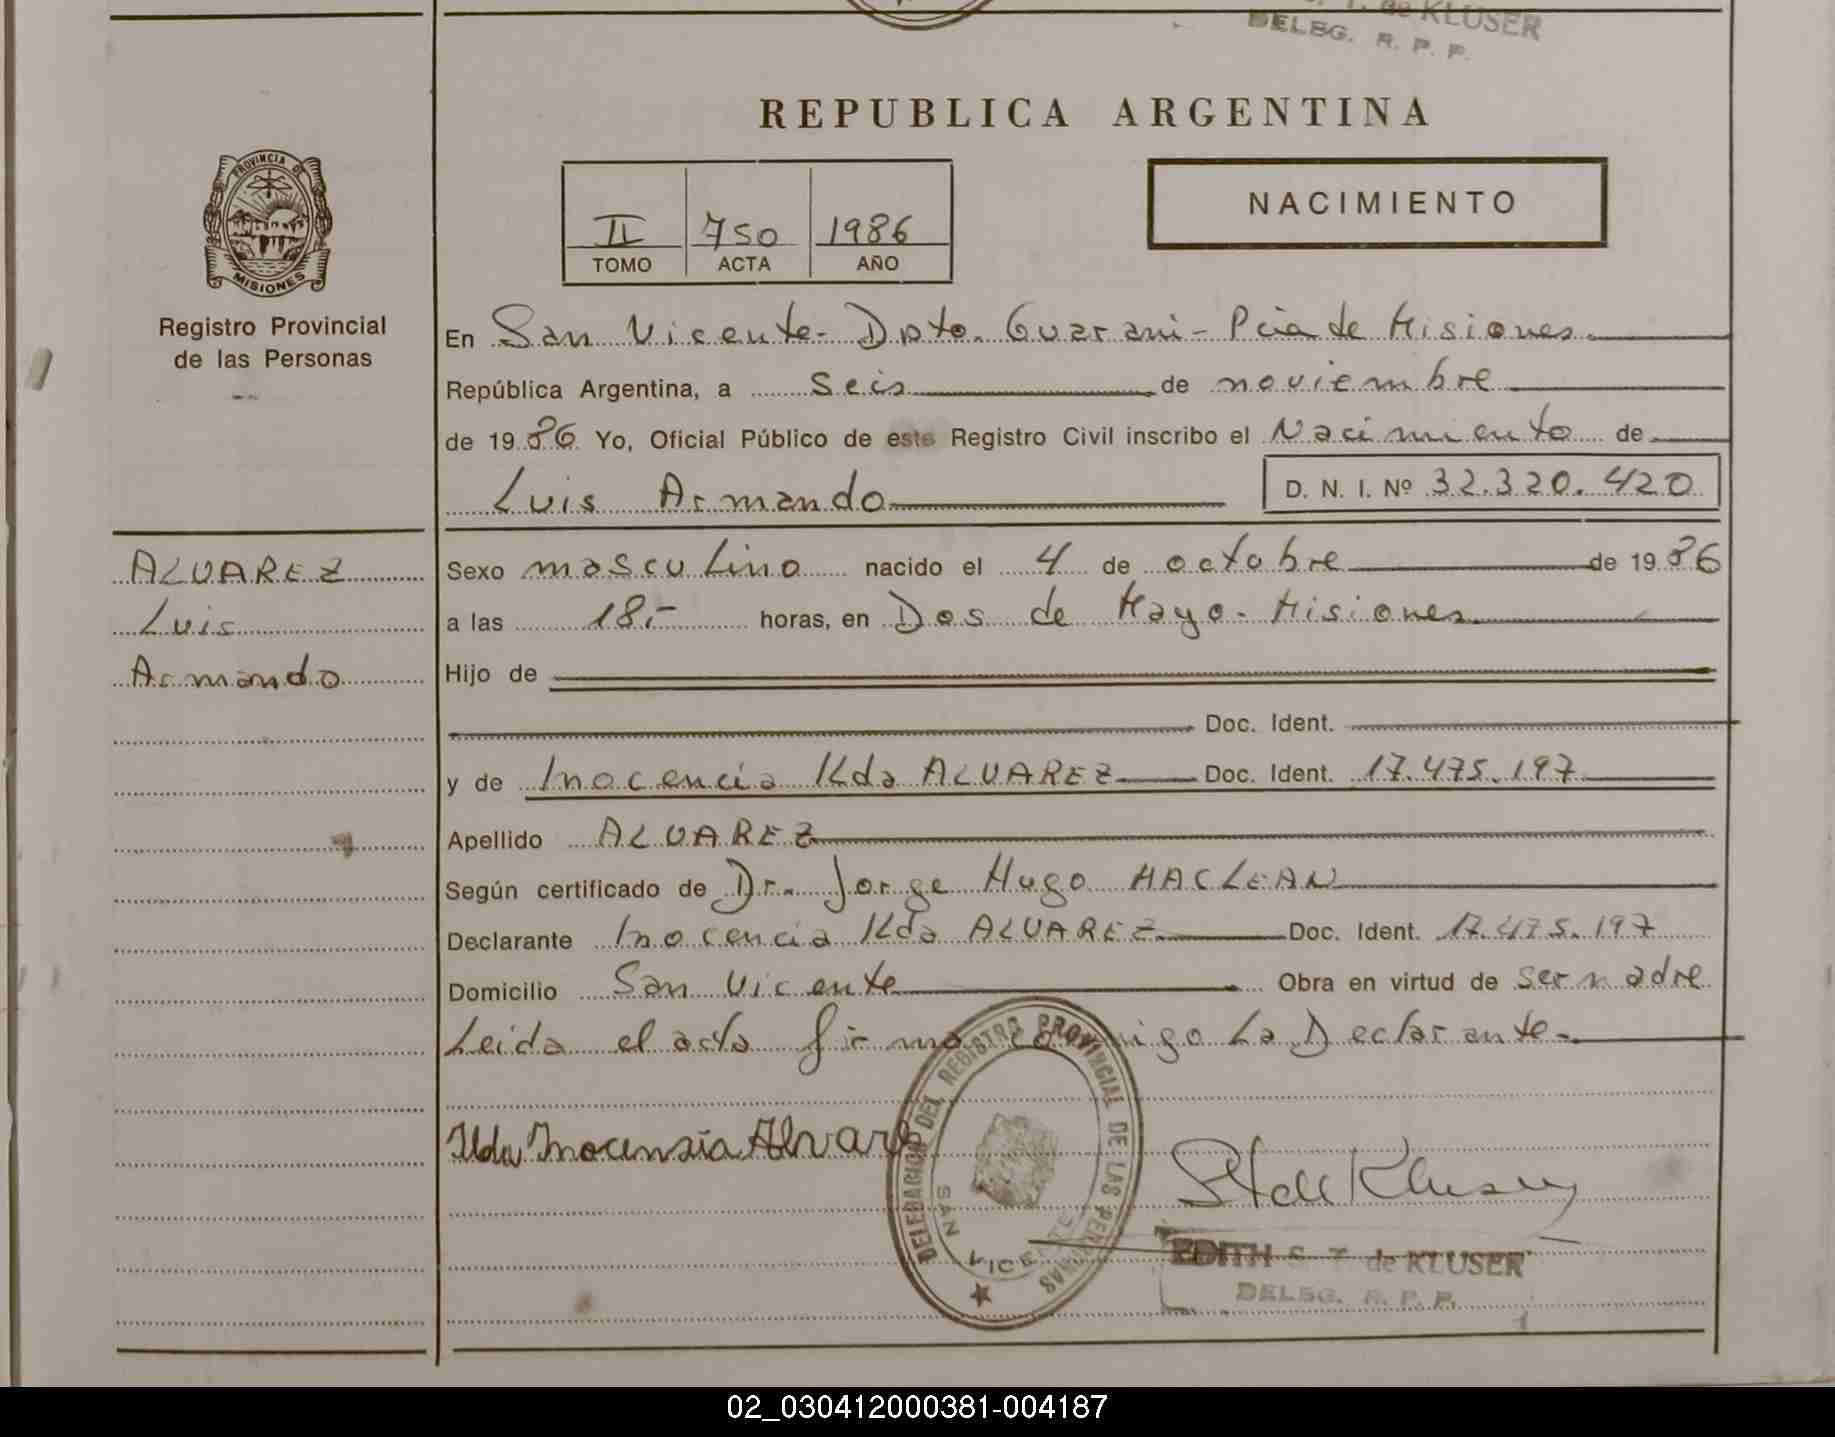 de KLUSER
DELEG. R. P. P.
REPUBLICA ARGENTINA
PROVINCIA DE
MISIONES
Registro Provincial
de las Personas
II 750 1986
TOMO ACTA AÑO
NACIMIENTO
En San Vicente - Dpto. Guarani - Pcia de Misiones
República Argentina, a seis de noviembre
de 1986 Yo, Oficial Público de este Registro Civil inscribo el Nacimiento de
Luis Armando D. N. I. Nº 32.320.420
ALVAREZ
Luis
Armando
Sexo masculino nacido el 4 de octobre de 1986
a las 18.- horas, en Dos de Mayo - Misiones
Hijo de
Doc. Ident.
y de Inocencia Ilda ALVAREZ Doc. Ident. 17.475.197
Apellido ALVAREZ
Según certificado de Dr. Jorge Hugo MACLEAN
Declarante Inocencia Ilda ALVAREZ Doc. Ident. 17.475.197
Domicilio San Vicente Obra en virtud de ser madre
Leida el acta firma conmigo La Declarante.
Ilda Inocensia Alvarez
DELEGACION DEL REGISTRO PROVINCIAL DE LAS PERSONAS
SAN VICENTE
EDITH S. T. de KLUSER
DELEG. R. P. P.
02_030412000381-004187